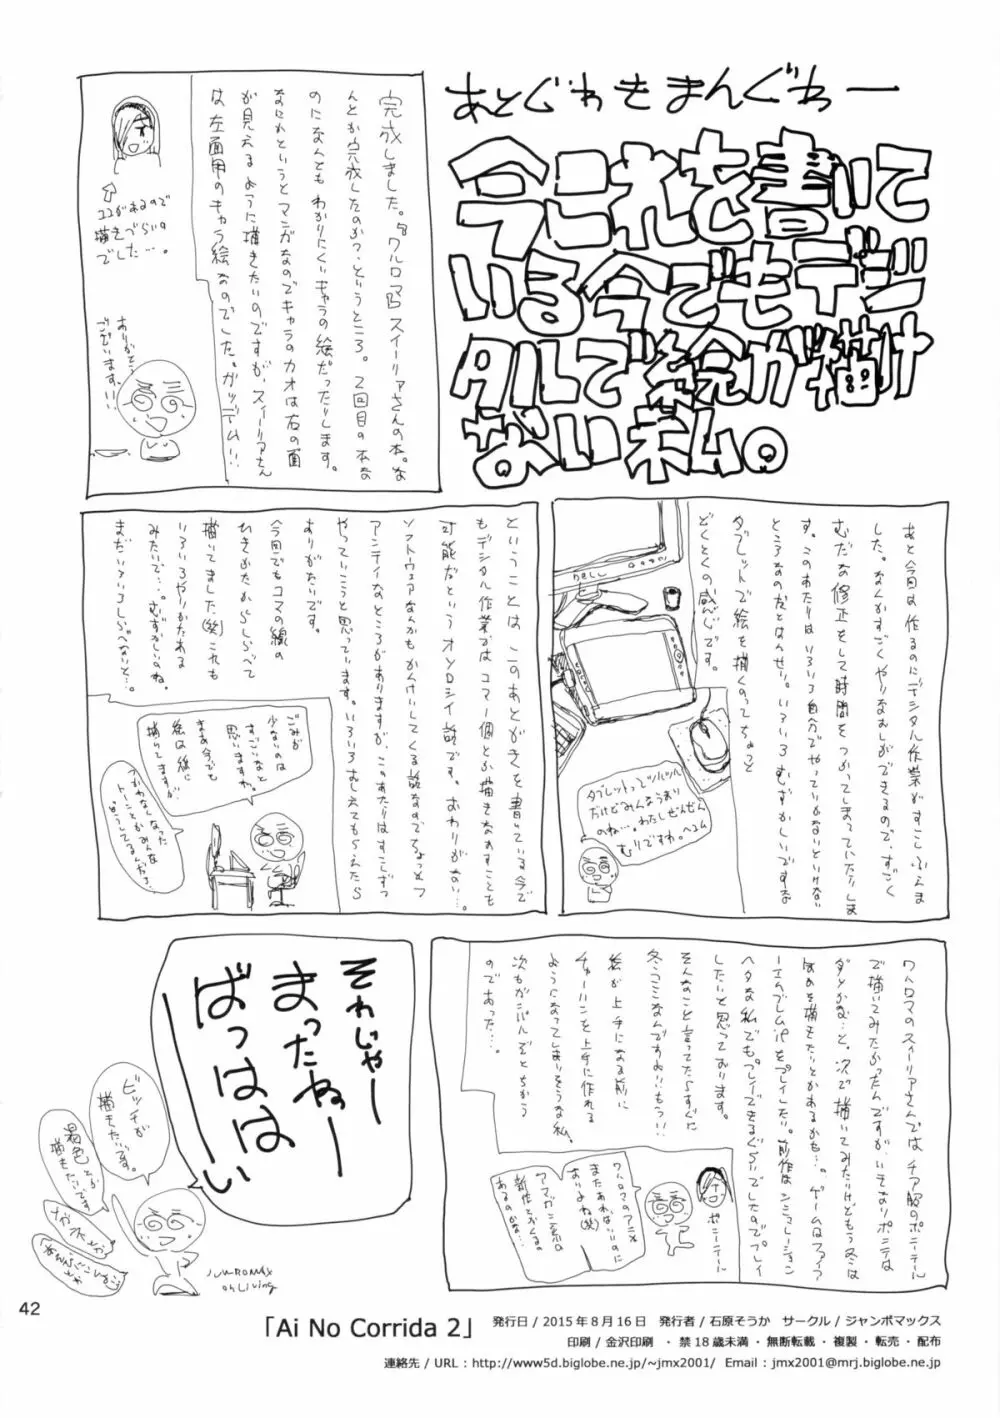 あとぐわきまんぐわー
今これを書いて
いる今でもデジ
タルで絵が描け
ない私。
完成しました。『ワルロマ』スイーリアさんの本。な
んとか完成したのか?というところ。2回目の本な
のになんともわかりにくいキャラの絵だったりします。
なにかというとマンガなのでキャラのカオは右の面
が見えるように描きたいのですが、スイーリアさん
は左面用のキャラ絵なのでした。ガッデム!!
ココがあるので
描きづらいの
でした…。
ありがとう
ございます!!
あと今回は作るのにデジタル作業がすこしふえま
した。なんかすごくやりなおしができるので、すごく
むだな修正をして時間をつかってしまっていたりしま
す。このあたりはいろいろ自分でやっていかないといけない
ところなのだとはんせい。いろいろむずかしいですな
タブレットで絵を描くのってちょっと
どくとくの感じです。
DELL
タブレットってツルツル
だけどみんなうまい
のね…。わたしぜんぜん
むりですわ。
ということは、このあとがきを書いている今で
もデジタル作業ではコマ一個とか描きなおすことも
可能だというオソロシイ話です。おわりがない…。
ソフトウェアなんかもかんけいしてくる話なのでちょっと
アンテイなところがありますが、このあたりはすこしずつ
やっていこうと思っています。いろいろおしえてもらえたら
ありがたいです。
今回でもコマの線の
ひきかたからしらべて
描いてました(笑)これも
いろいろやりかたある
みたいで…。むずかしいのね。
まだいろいろしらべないと…。
ごみが
少ないのは
すごいなと
思いますわ。
まあ今でも
絵は紙に
描いてますが
つかわなくなった
トーンとかみんな
どうしてるんだろ?
ワルロマのスイーリアさんではチア服のポニテール
で描いてみたかったんですが、いきなりポニテは
ダメかな…と。次で描いてみたいけどもう冬は
そんなこと言ってたらすぐに
冬コミなんですよ!!もうっ!!
絵が上手になる前に
チャーハンを上手に作れる
ようになってしまいそうな私。
次もガンバルぞとちかう
のであった…。
ポニーテール
ワルロマのアニメ
またあればいいのに
おりょね(笑)
それじゃー
まったねー
ばっははーい
ビッチが
描きたいです。
褐色とか
描きたいです
JUMBOMAX
Oh Living
42
「Ai No Corrida 2」 発行日/2015年8月16日 発行者/石原そうか サークル/ジャンボマックス
印刷/金沢印刷 ・禁18歳未満・無断転載・複製・転売・配布
連絡先/URL:http://www5d.biglobe.ne.jp/~jmx2001/ Email:jmx2001@mrj.biglobe.ne.jp